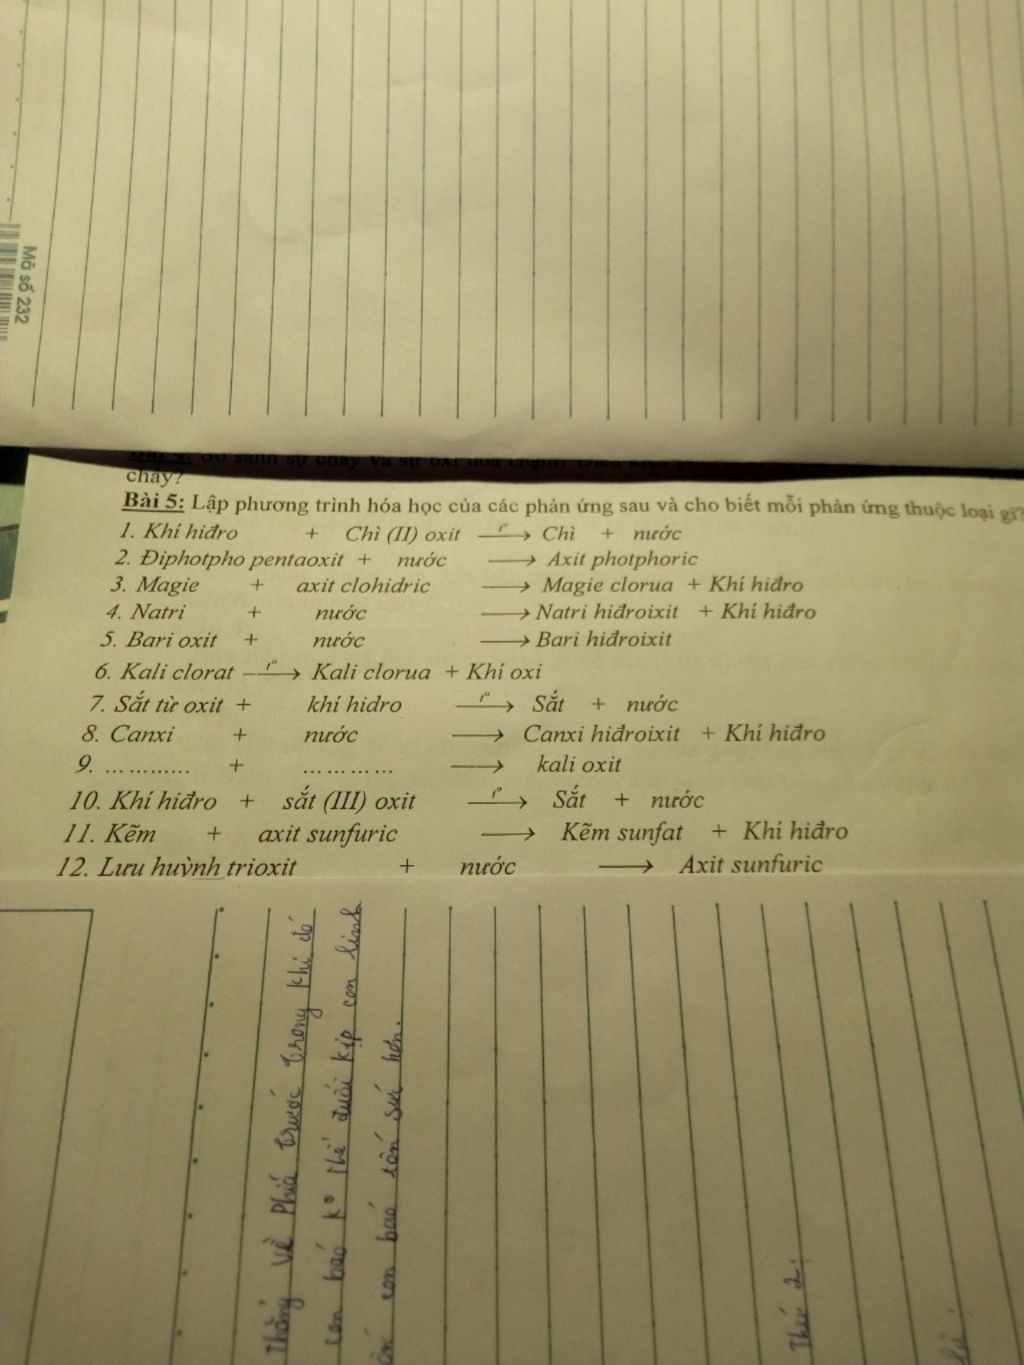 Mã số 232
cháy?
Bài 5: Lập phương trình hóa học của các phản ứng sau và cho biết mỗi phản ứng thuộc loại gì?
1. Khí hiđro + Chì (II) oxit —t°→ Chì + nước
2. Điphotpho pentaoxit + nước ⟶ Axit photphoric
3. Magie + axit clohidric ⟶ Magie clorua + Khí hiđro
4. Natri + nước ⟶ Natri hiđroixit + Khí hiđro
5. Bari oxit + nước ⟶ Bari hiđroixit
6. Kali clorat —t°→ Kali clorua + Khí oxi
7. Sắt từ oxit + khí hidro —t°→ Sắt + nước
8. Canxi + nước ⟶ Canxi hiđroixit + Khí hiđro
9. ............ + ............ ⟶ kali oxit
10. Khí hiđro + sắt (III) oxit —t°→ Sắt + nước
11. Kẽm + axit sunfuric ⟶ Kẽm sunfat + Khí hiđro
12. Lưu huỳnh trioxit + nước ⟶ Axit sunfuric
thẳng về phía trước trong khi đó
con báo k° thể đuổi kịp con linh
con báo tốn sức hơn.
Thứ 2: